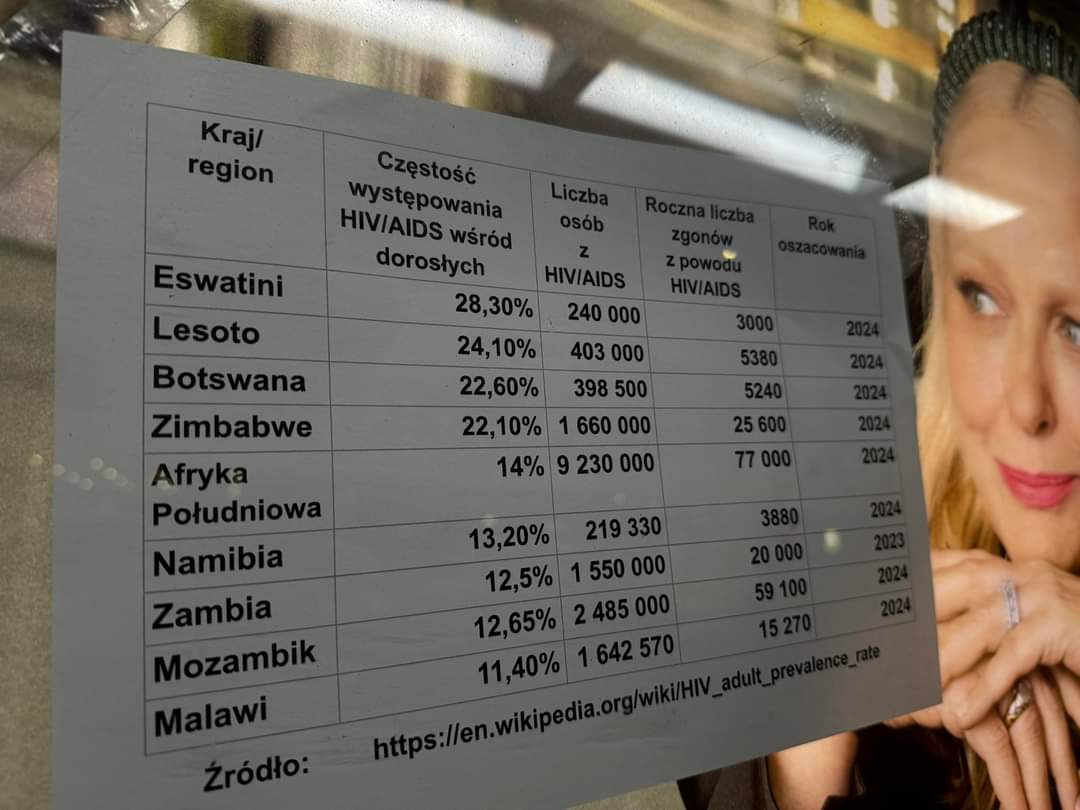 Kraj/
region
Częstość
występowania
HIV/AIDS wśród
dorosłych
Liczba
osób
z
HIV/AIDS
Roczna liczba
zgonów
z powodu
HIV/AIDS
Rok
oszacowania
Eswatini 28,30% 240 000 3000 2024
Lesoto 24,10% 403 000 5380 2024
Botswana 22,60% 398 500 5240 2024
Zimbabwe 22,10% 1 660 000 25 600 2024
Afryka
Południowa 14% 9 230 000 77 000 2024
Namibia 13,20% 219 330 3880 2024
Zambia 12,5% 1 550 000 20 000 2023
Mozambik 12,65% 2 485 000 59 100 2024
Malawi 11,40% 1 642 570 15 270 2024
Źródło: https://en.wikipedia.org/wiki/HIV_adult_prevalence_rate